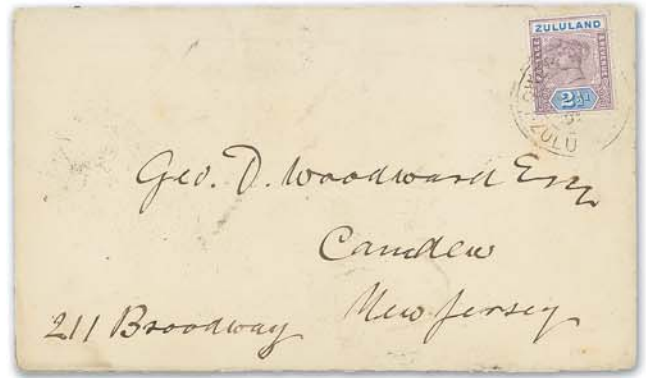 ZULULAND
POSTAGE
REVENUE
2½d
ZULU
Geo. D. Woodward Esq
Camden
New Jersey
211 Broadway